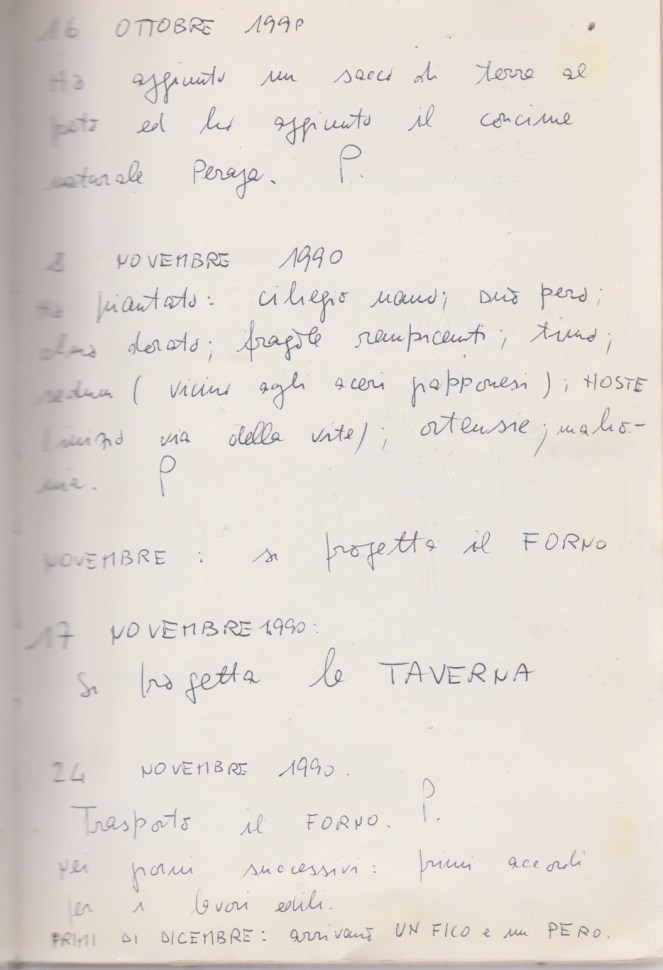 16 OTTOBRE 1990
Ho aggiunto un sacco di terra al
prato ed ho aggiunto il concime
naturale P.
8 NOVEMBRE 1990
Ho piantato: ciliegio nano; pero;
olmo dorato; fragole rampicanti; timo;
sedum (vicino agli aceri giapponesi); HOSTE
(inizio via della vite); ortensie; maho-
nia. P
NOVEMBRE : si progetta il FORNO
17 NOVEMBRE 1990:
Si progetta la TAVERNA
24 NOVEMBRE 1990:
Trasporto il FORNO. P.
Nei giorni successivi: primi accordi
per i lavori edili.
PRIMI DI DICEMBRE: arrivano UN FICO e un PERO.